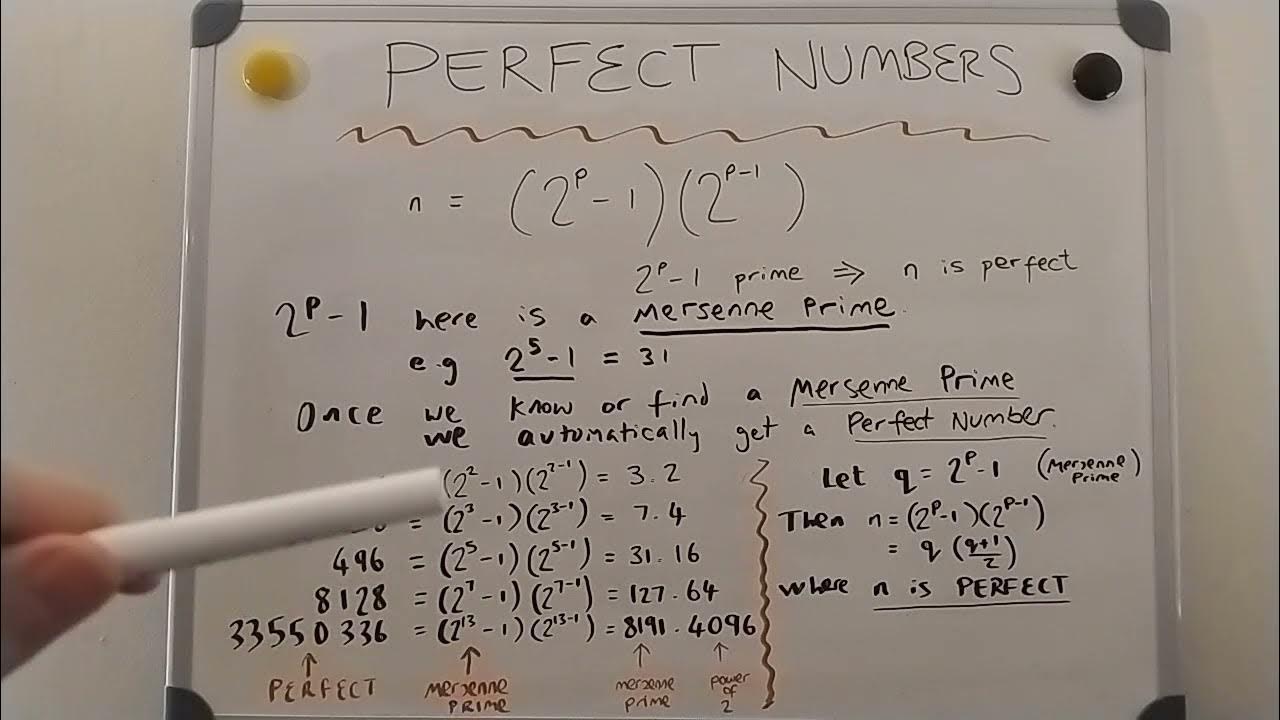 PERFECT NUMBERS
n = (2^p - 1)(2^{p-1})
2^p - 1 prime ⇒ n is perfect
2^p - 1 here is a Mersenne Prime.
e.g 2^5 - 1 = 31
Once we know or find a Mersenne Prime
we automatically get a Perfect Number.
(2^2 - 1)(2^{2-1}) = 3.2
= (2^3 - 1)(2^{3-1}) = 7.4
496 = (2^5 - 1)(2^{5-1}) = 31.16
8128 = (2^7 - 1)(2^{7-1}) = 127.64
33550336 = (2^{13} - 1)(2^{13-1}) = 8191.4096
↑ ↑ ↑ ↑
PERFECT
mersenne
PRIME
mersenne
prime
power
of
2
Let q = 2^p - 1 (Mersenne
Prime)
Then n = (2^p - 1)(2^{p-1})
= q (q+1/2)
where n is PERFECT